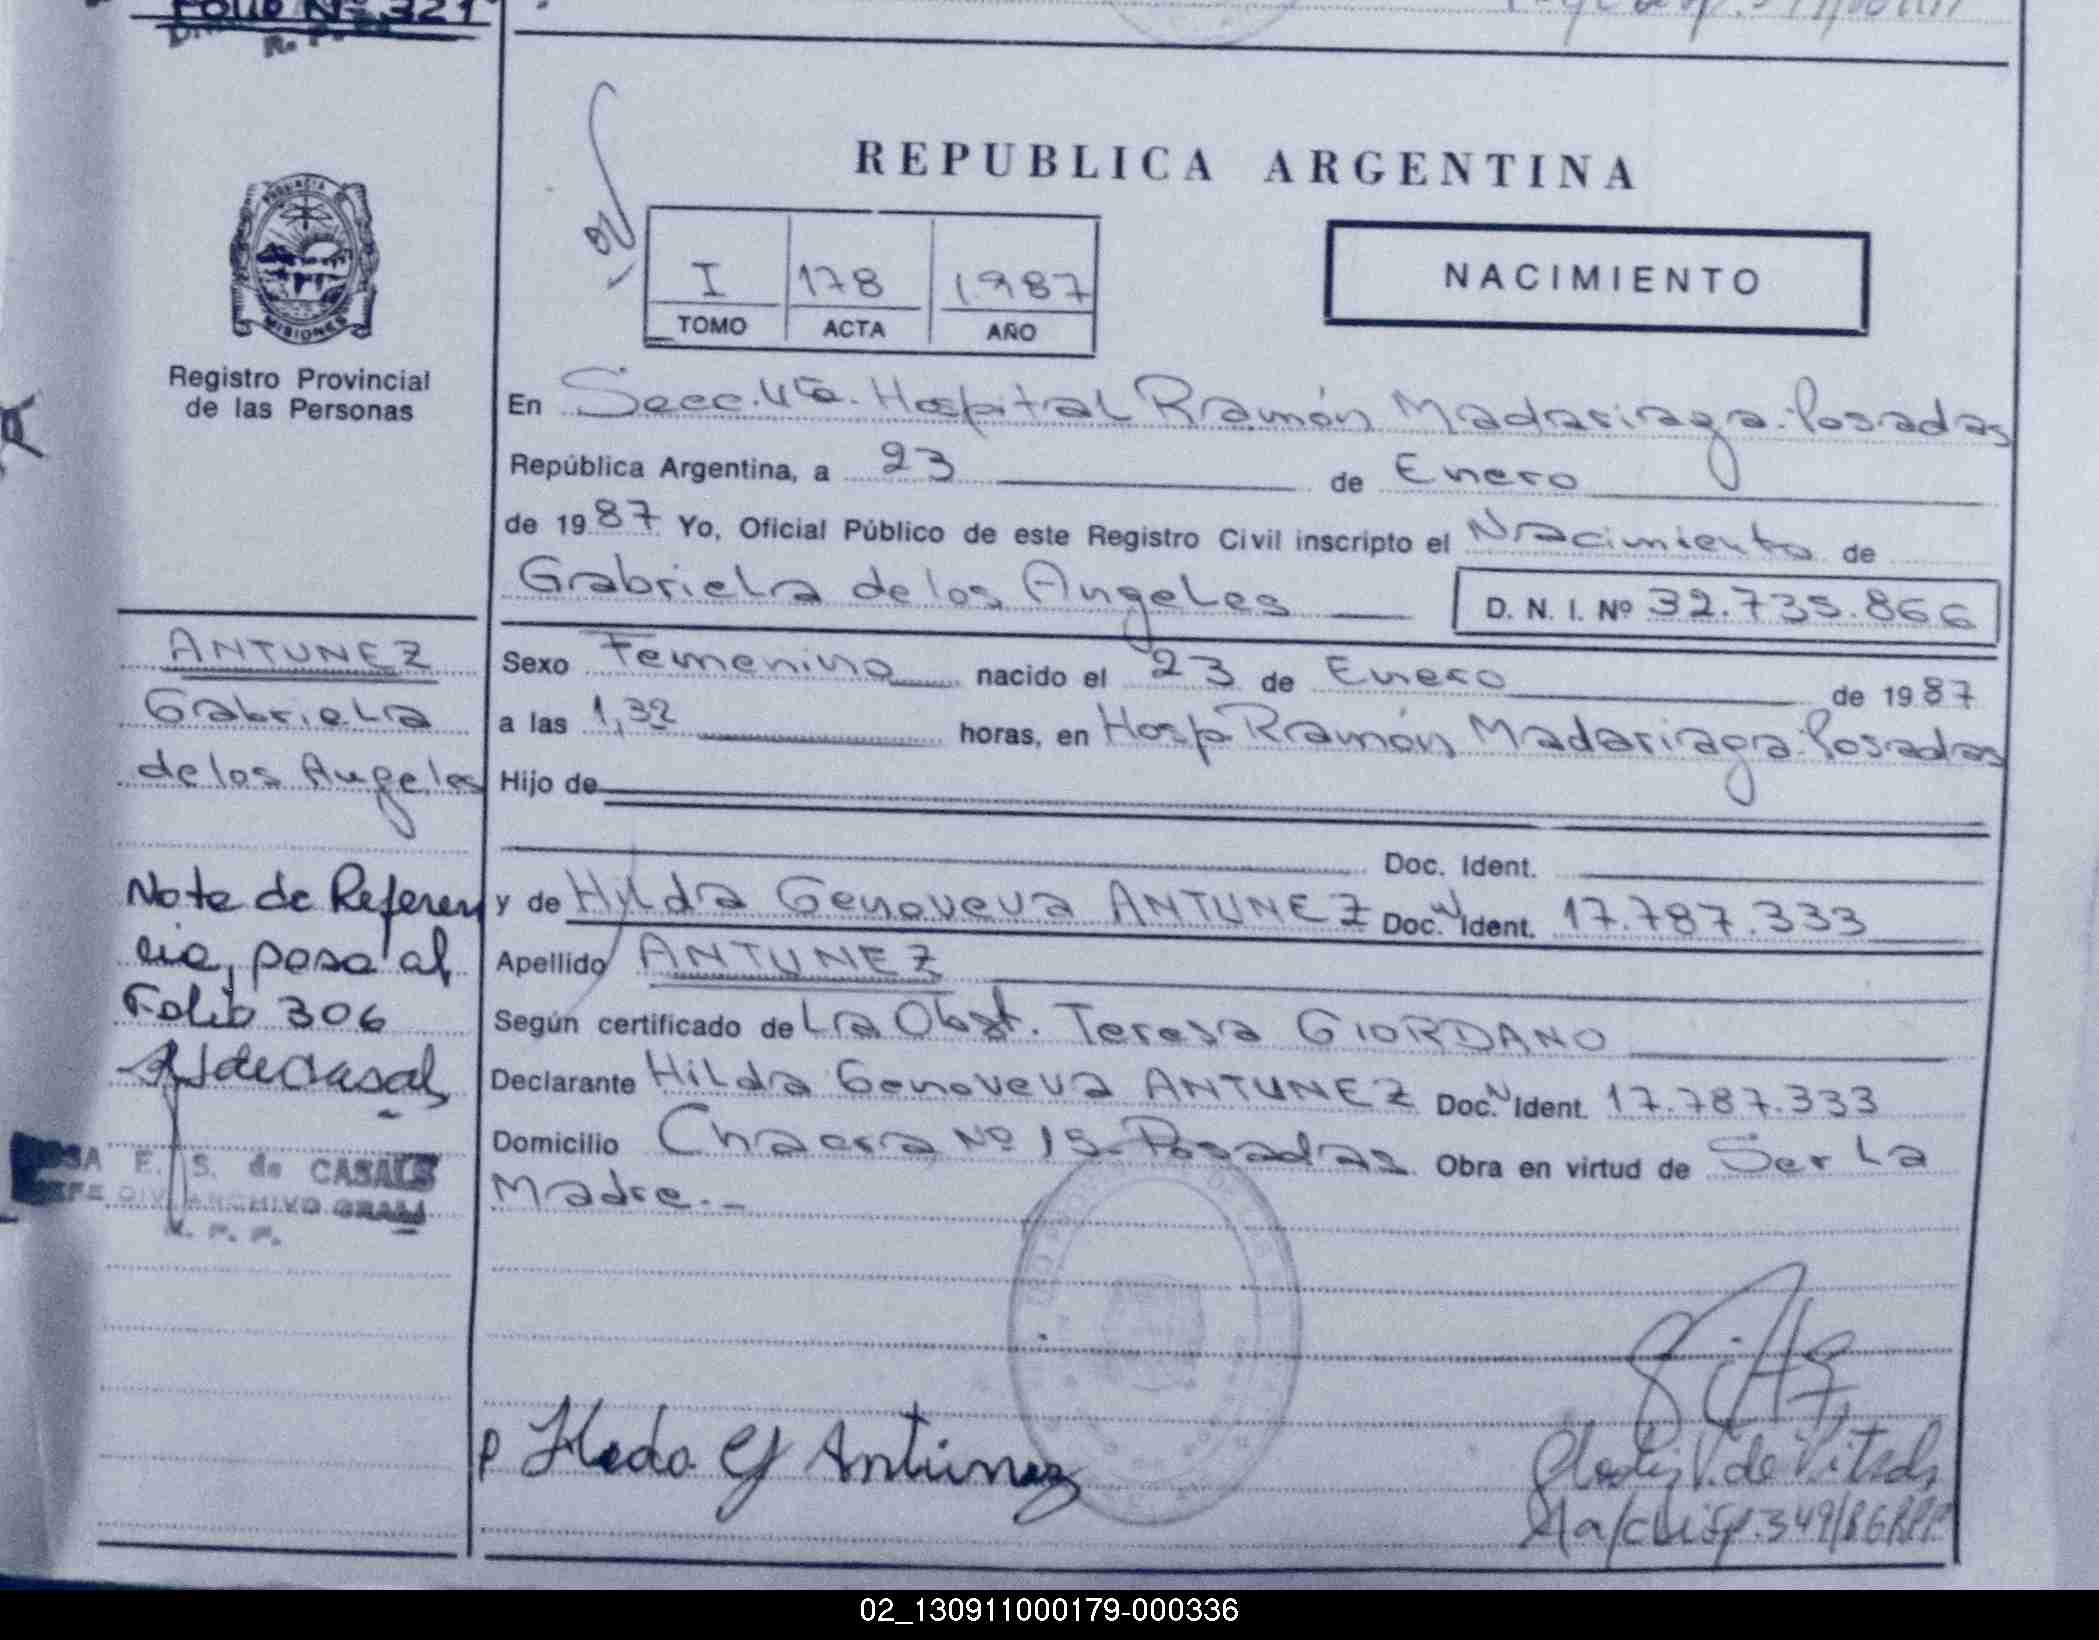 Folio Nº 321
R. P. P.
REPUBLICA ARGENTINA
PROVINCIA DE
MISIONES
Registro Provincial
de las Personas
I 178 1.987
TOMO ACTA AÑO
NACIMIENTO
En Secc. 4ta. Hospital Ramón Madariaga. Posadas
República Argentina, a 23 de Enero
de 1987 Yo, Oficial Público de este Registro Civil inscripto el Nacimiento de
Gabriela de los Angeles D. N. I. Nº 32.735.866
Sexo Femenino nacido el 23 de Enero de 1987
a las 1,32 horas, en Hosp Ramón Madariaga. Posadas
Hijo de
Doc. Ident.
y de Hilda Genoveva ANTUNEZ Doc. N Ident. 17.787.333
Apellido ANTUNEZ
Según certificado de La Obst. Teresa GIORDANO
Declarante Hilda Genoveva ANTUNEZ Doc. N Ident. 17.787.333
Domicilio Chacra Nº 15 - Posadas Obra en virtud de Ser La
Madre. -
ANTUNEZ
Gabriela
de los Angeles
Nota de Referen
cia, pasa al
Folio 306
F. S. de CASALS
JEFE DIV. ARCHIVO GRAL
R. P. P.
P Hilda G Antunez
02_130911000179-000336